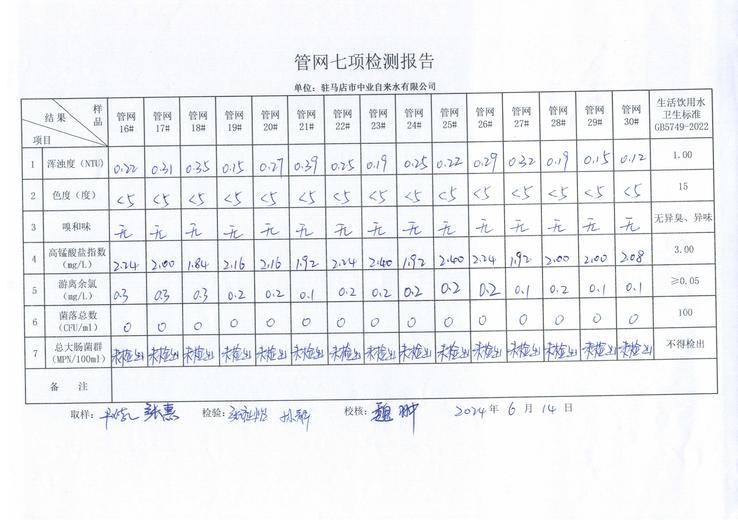 管网七项检测报告
单位：驻马店市中业自来水有限公司
样品 结果 项目 管网16# 管网17# 管网18# 管网19# 管网20# 管网21# 管网22# 管网23# 管网24# 管网25# 管网26# 管网27# 管网28# 管网29# 管网30# 生活饮用水卫生标准GB5749-2022
1 浑浊度（NTU） 0.22 0.31 0.35 0.15 0.27 0.39 0.25 0.19 0.25 0.22 0.29 0.32 0.19 0.15 0.12 1.00
2 色度（度） <5 <5 <5 <5 <5 <5 <5 <5 <5 <5 <5 <5 <5 <5 <5 15
3 嗅和味 无 无 无 无 无 无 无 无 无 无 无 无 无 无 无 无异臭、异味
4 高锰酸盐指数（mg/L） 2.24 2.00 1.84 2.16 2.16 1.92 2.24 2.40 1.92 2.40 2.24 1.92 2.00 2.00 2.08 3.00
5 游离余氯（mg/L） 0.3 0.3 0.3 0.2 0.2 0.1 0.2 0.2 0.2 0.2 0.2 0.1 0.2 0.1 0.1 ≥0.05
6 菌落总数（CFU/ml） 0 0 0 0 0 0 0 0 0 0 0 0 0 0 0 100
7 总大肠菌群（MPN/100ml） 未检出 未检出 未检出 未检出 未检出 未检出 未检出 未检出 未检出 未检出 未检出 未检出 未检出 未检出 未检出 不得检出
备 注
取样： 张惠 检验： 校核： 魏翀 2024年 6 月 14 日